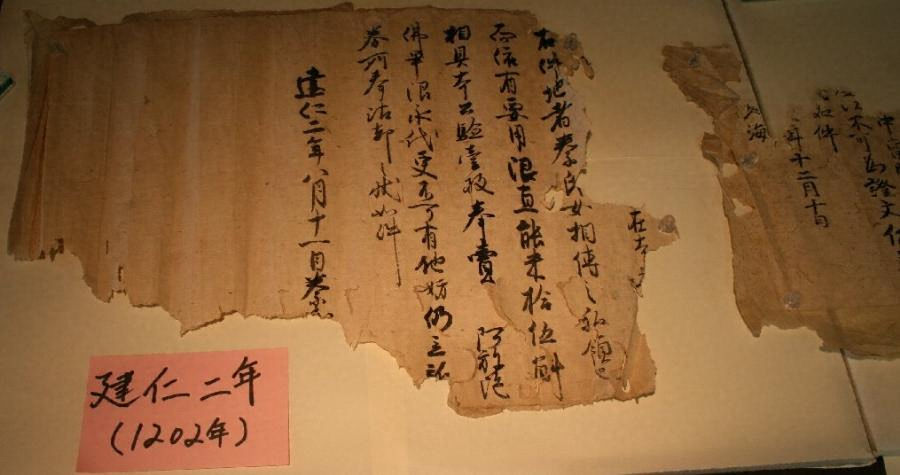 證文
如件
年十二月十日
海
在本
右件地者秦氏女相傳之私領也
而依有要用限直能米拾伍斛
相具本公驗壹枚奉賣 阿弥陀
佛畢限永代更不可有他妨仍立新
券所奉沽却之状如件
建仁二年八月十一日秦
建仁二年
(1202年)